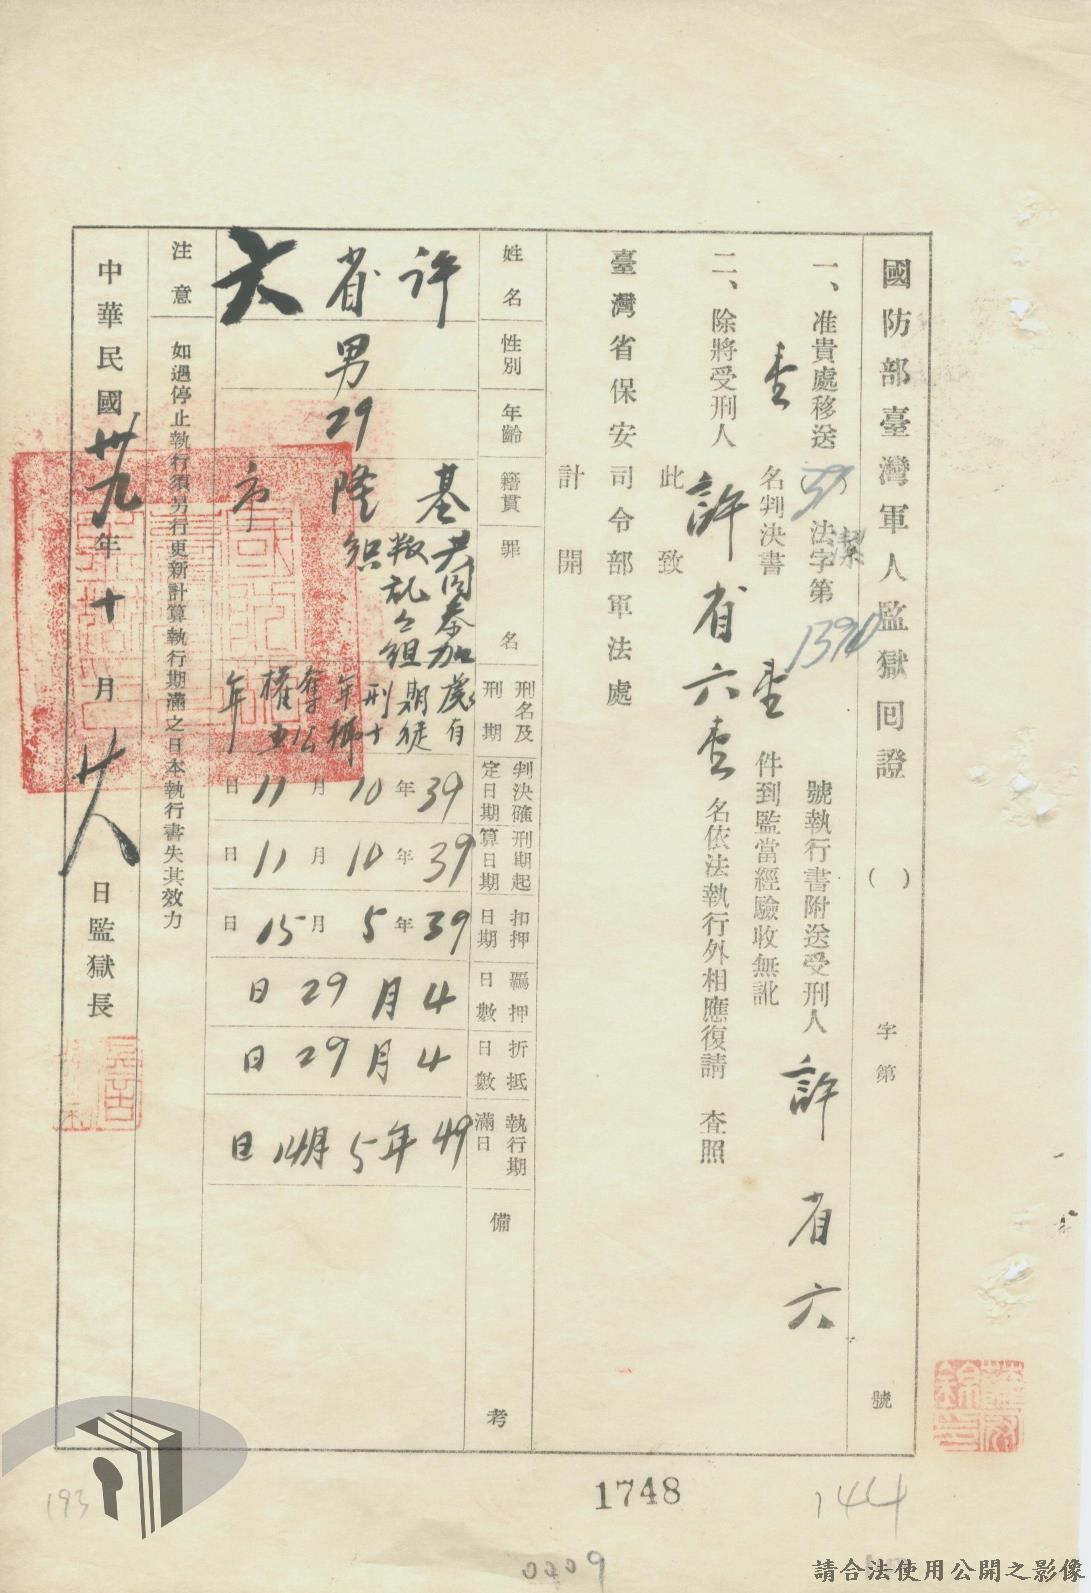 國防部臺灣軍人監獄回證 ( ) 字第 號
一、准貴處移送(39)潔法字第1390號執行書附送受刑人許省六
壹名判決書壹件到監當經驗收無訛
二、除將受刑人許省六壹名依法執行外相應復請 查照
此致
臺灣省保安司令部軍法處
計開
姓名 許省六
性別 男
年齡 29
籍貫 基隆市
罪名 共同參加叛乱之組織
刑名及刑期 處有期徒刑十年褫奪公權五年
判決確定日期 39年10月11日
刑期起算日期 39年10月11日
扣押日期 39年5月15日
羈押日數 4月29日
折抵日數 4月29日
執行期滿日 49年5月14日
備考
注意 如遇停止執行須另行更新計算執行期滿之日本執行書失其效力
中華民國卅九年十月廿八日監獄長
1748
144
193
0209
請合法使用公開之影像